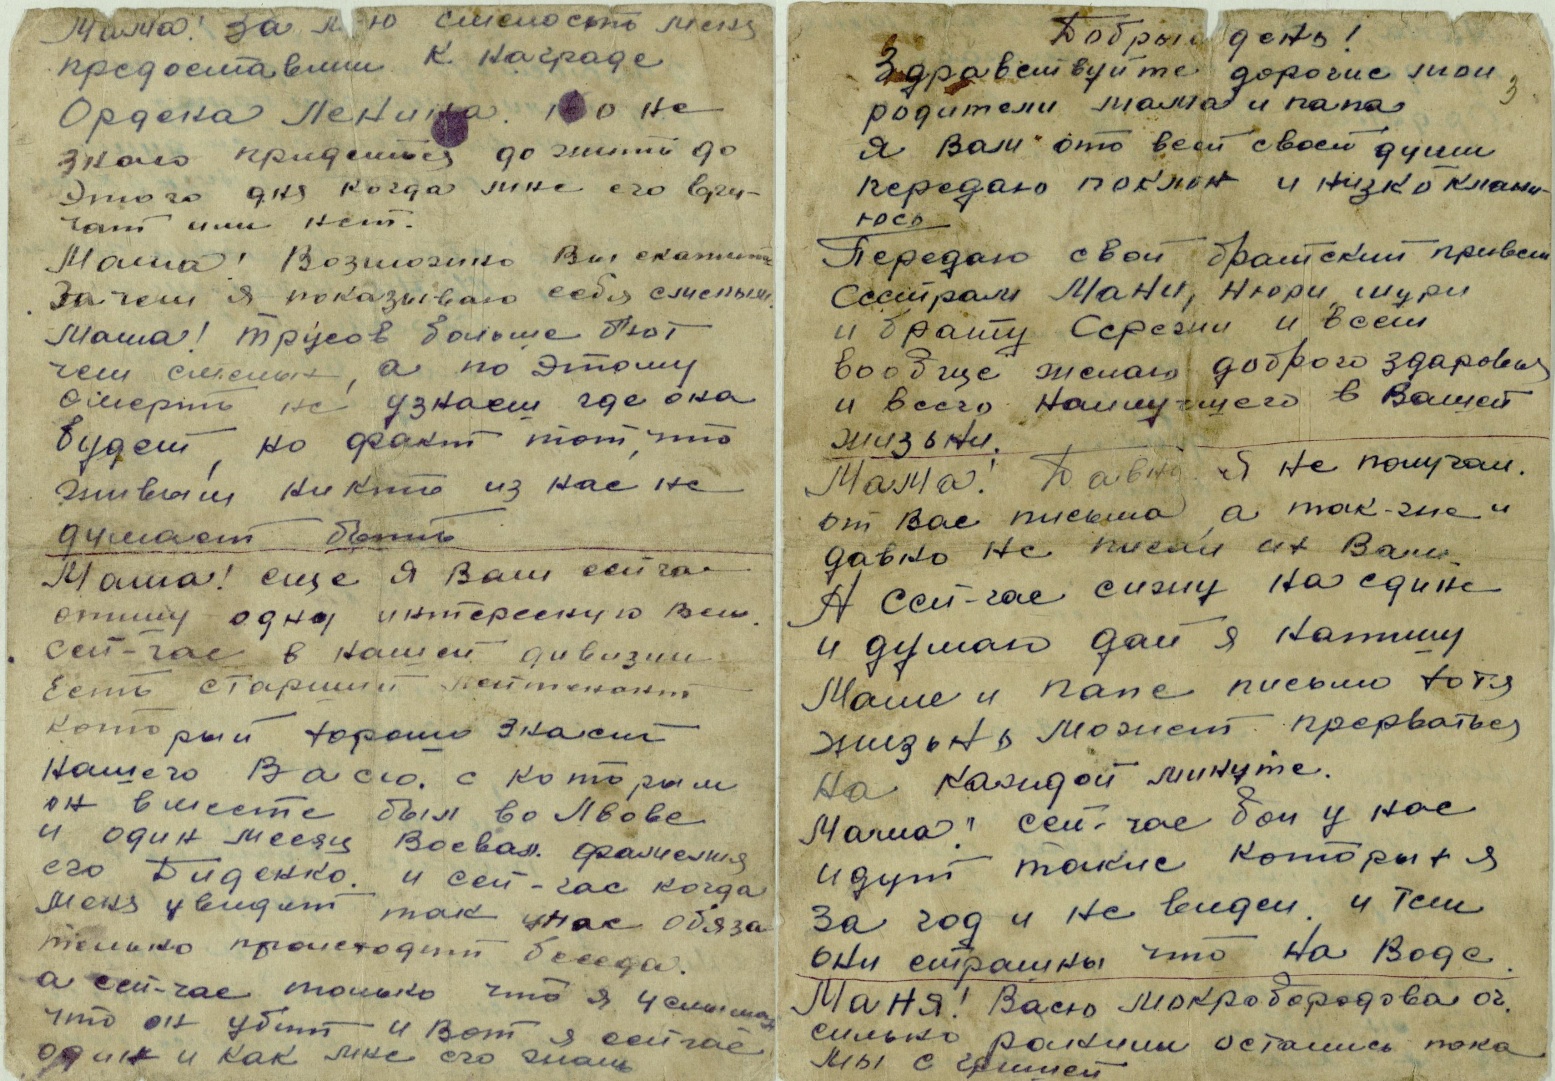 Мама! За мою смелость меня
предоставили к награде
Ордена Ленина. но не
знаю придеться дожить до
этого дня когда мне его вру-
чат или нет.
Мама! Возможно Вы скажите
Зачем я показываю себя смелым.
Мама! трусов больше бют
чем смелых, а по этому
смерть не узнаеш где она
будет, но факт тот, что
живым никто из нас не
думает быть
Мама! еще я Вам сейчас
опишу одну интересную вещ.
Сей-час в нашей дивизии
Есть старший лейтенант
который хорошо знает
нашего Васю. с которым
он вместе был во Львове
и один месяц Воевал. фамилия
его Биденко. и сей-час когда
меня увидит так унас обяза
тельно происходит беседа.
а сей-час только что я услышал
что он убит и Вот я сейчас
один и как мне его жаль
Добрый день!
3
Здравствуйте дорогие мои
родители мама и папа
Я Вам ото всей своей души
передаю поклон и низко клани-
юсь
Передаю свой братский привет
Сестрам Мани, Нюри, шури
и брату Сережи и всем
вообще желаю доброго здаровья
и всего наилучшего в Вашей
жизьни.
Мама! Давно я не получал.
от Вас письма, а так-же и
давно не писал их Вам.
А Сей-час сижу на едине
и думаю дай я напишу
Маме и папе письмо хотя
жизьнь может прерваться
на каждой минуте.
Мама! сей-час бои у нас
идут такие которых я
за год и не видел. и тем
они страшны что на Воде.
Маня! Васю Мокробородова оч.
сильно ранили остались пока
мы с гришей